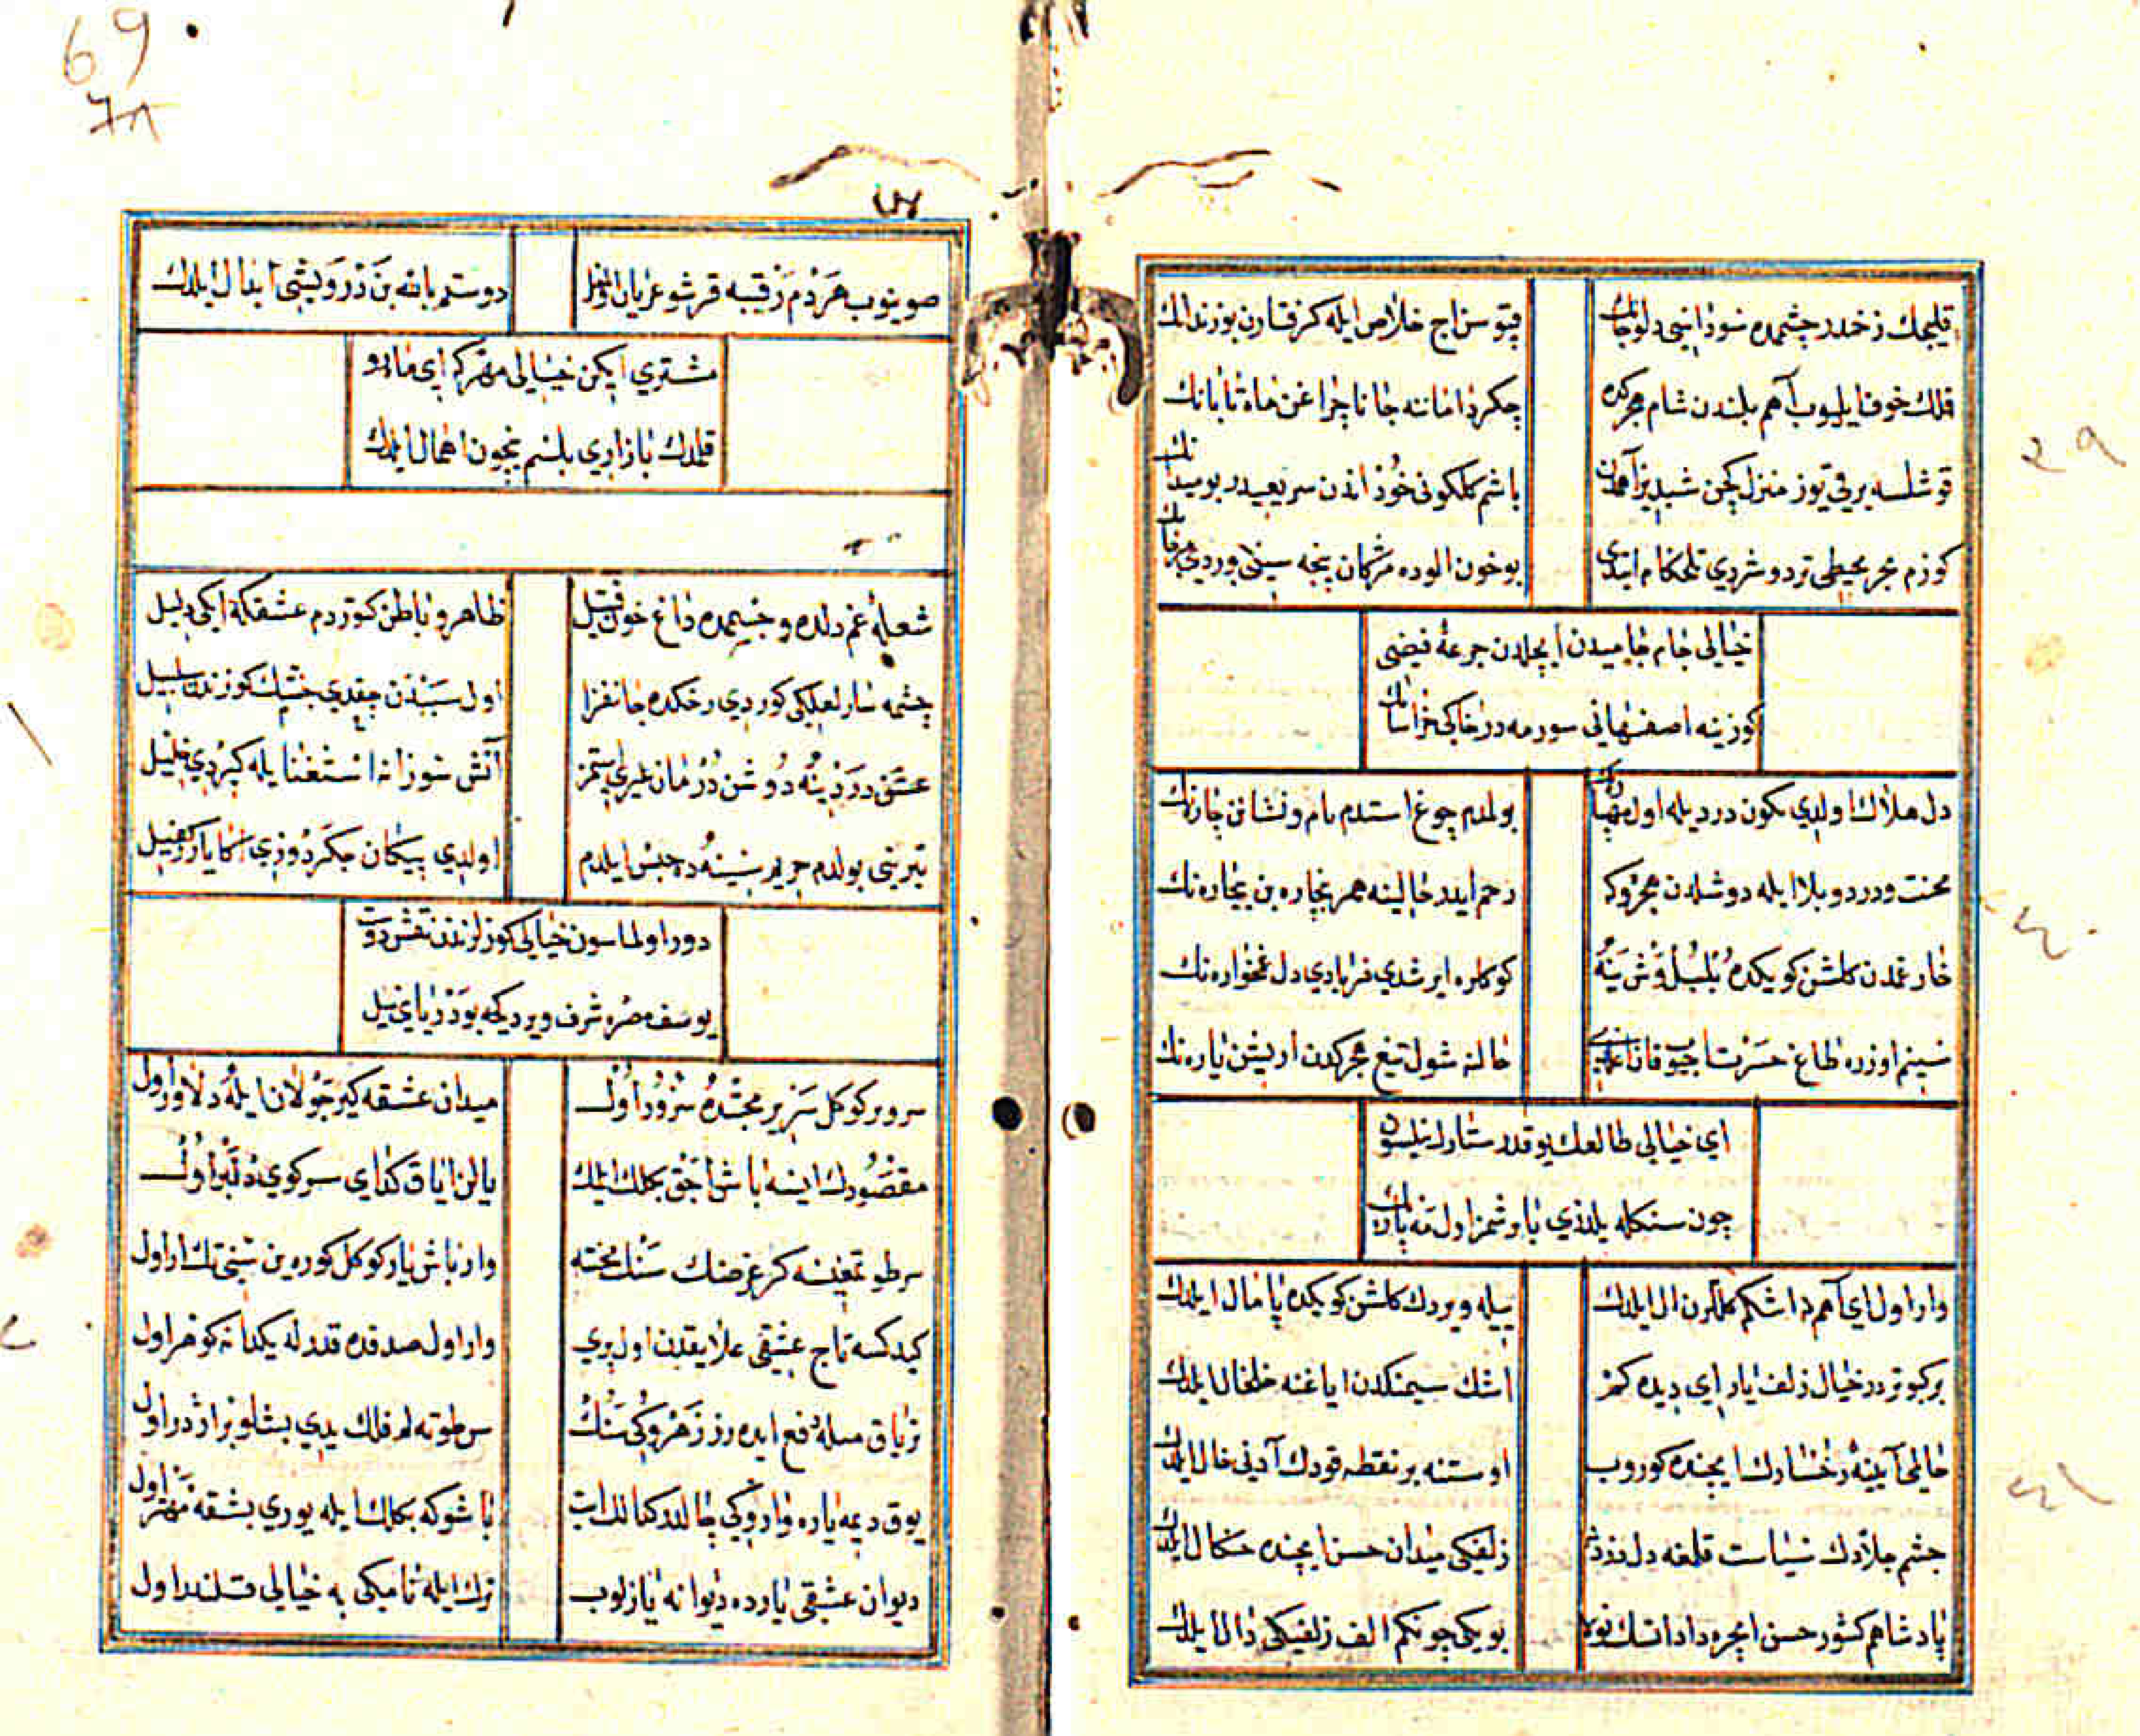 قلیجك زخدر چشمده سودانیی دلوجانك
قپوسن اج خلاص ایله كرفتارن بوزندانك
فلك خوف ایلیوب آهم یلندن شام هجركده
چكر دامانه جانا چراغن ماه تابانك
قوشلسه برقی تیوز منزل كچن شبدیز آهمدن
باشم كلكونی خود اندن سریعیدر بومیدانك
كوزم بحر محیطی تردوشردی تلخكام ایتدی
بو خون الوده مژكان پنجه سینی بوردی مرجانك
خیالی جام جامیدن ایچلدن جرعه فیضی
كوزینه اصفهانی سورمه در خاكی خراسانك
دل هلاك اولدی بكون دردیله اول مهپارنك
بولمدم چوغ استدم نام ونشانن چارنك
محنت ودرد وبلا ایله دوشلدن هجروكه
رحم ایدر حالینه هر بیچاره بن بیچاره نك
خار غمدن كلشن كویكده بلبل وش ینه
كوكلره ایرشدی فریادی دل غمخواره نك
سینم اوزره طاغ حسرتتا جیوقان اغلدی
حالنه شول تیغ هجركدن اریشن یاره نك
ای خیالی طالعك یوقدر ستارك نیلسون
چون سنكله یلدزی باروشمز اول مه پارنك
وار اول ای آهم داشكم كللرن ال ایلدك
ییله ویردك كلشن كویكده پامال ایلدك
بر كبوتردر خیال زلف یار ای دیده كمز
اشك سیمنكدن ایاغنه خلخال ایلدك
خالمی آیینه رخسارك ایچنده كوروب
اوستنه بر نقطه قودك آدینی خال ایلدك
چشم جلادك سیاست قلمغه دل دزدنی
زلفیكی میدان حسن ایچنده چنكال ایلدك
پادشاهم كشور حسن ایچره داد اتسك نوله
بویكی چونكم الف زلفیكی دال ایلدك
صوینوب هردم رقیبه قرشو عریان اولمغله
دوستم بالله بن درویشی ابدال ایلدك
مشتری ایكن خیالی مهركه ای ماه رو
قلمدك بازاری بلسم نیچون اهمال ایلدك
شعله غم دلده و چشممده داغ خون فتیل
ظاهر و باطن كتوردم عشقكه ایكی دلیل
چشمه سار لعلكی كوردی رخكده جانفزا
اول سببدن چقدی جنتك كوزندن سلسبیل
عشق دردینه دوشن درمان غیری استمز
آتش سوزانه استغنا ایله كیردی خلیل
تیرینی بولدم حریم سینه ده حبس ایلدم
اولدی پیكان جكر دوزی اكا یارر كفیل
دور اولماسون خیالی كوزلرندن نقش دوت
یوسف مصره شرف ویردكجه بو دریای نیل
سرویر كوكل سریر محبتده سرور اول
میدان عشقه كیر جولان ایله دلاور اول
مقصودك ایسه باش اچق بكلك ایلمك
یالن ایاق كدای سر كوی دلبر اول
سرطو تمغیسه كر غرضك سنك محنته
وار باش یار كوكل كوره ین سنی تك ار اول
كیدكسه تاج عشقی علایقدن اول بری
وار اول صدفده قدرله یكدانه كوهر اول
تریاق مسله دفع ایده رز زهروكی سنك
سن طوته لم فلك یدی بشلو بر اژدر اول
یوق دیمه یاره واروكی چالدر كمالك ایت
باشوكه بكلك ایله یوری بشقه مهتر اول
دیوان عشقی یارده دیوانه یازلوب
ترك ایله نامیكی به خیالی قلندر اول